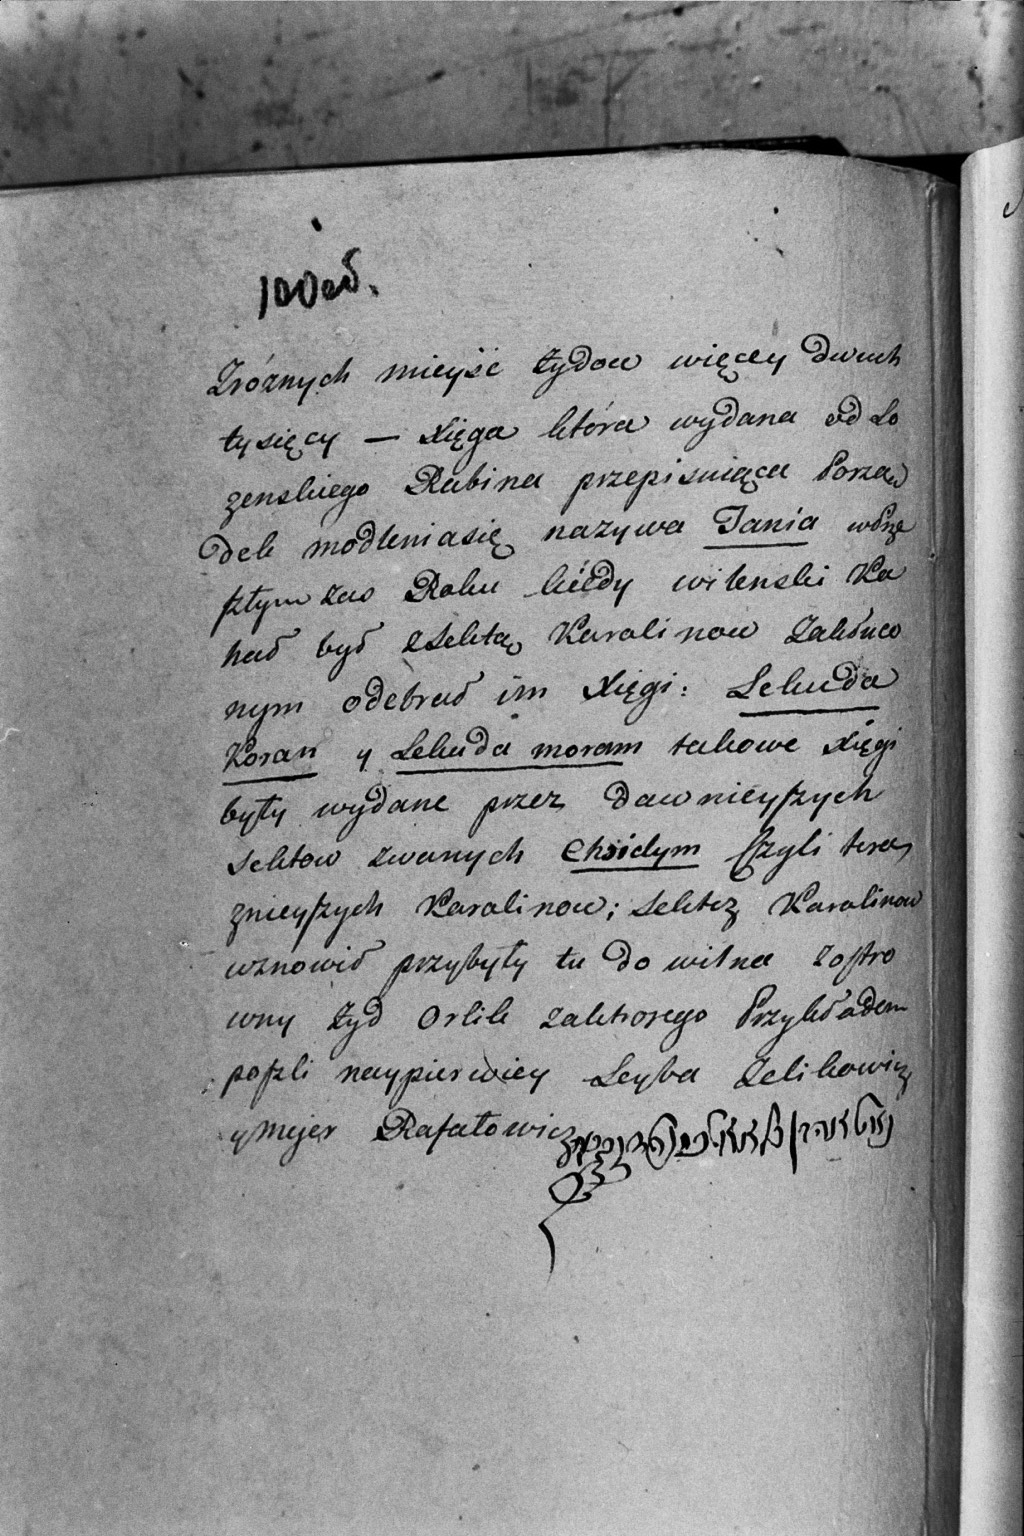 100 об.
Zróżnych mieysc żydow więcey dwuch
tysięcy — Xięga którа wydana od Ło
zenskiego Rabina przepisuiąca Porzą
dek modleniasię nazywa Tania wprze
szłym zas Roku kiedy wilenski Ka
hał był zsektą Karolinow Zakłuco
nym odebrał im Xięgi: Lekuda
Koran y Lekuda moram takowe Xięgi
były wydane przez dawnieyszych
sektow zwanych Chsidym Czyli tera
znieyszych Karolinow; sektę Karolinow
wznowił przybyły tu do wilna Zostro
wny żyd Orlik zaktorego Przykładem
poszli naypierwiey Leyba Zelikowicz
y Mejer Rafałowicz